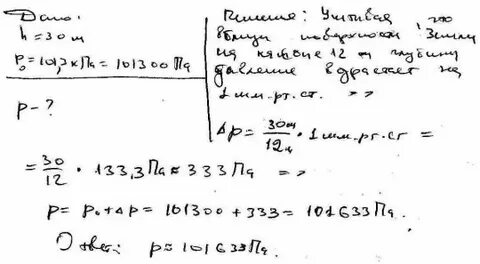 Дано:
h = 30 м
P₀ = 101,3 кПа = 101300 Па
p - ?
Решение: Учитывая, что
вблизи поверхности Земли
на каждые 12 м глубины
давление возрастает на
1 мм. рт. ст. =>
Δp = 30м/12м · 1 мм. рт. ст =
= 30/12 · 133,3 Па ≈ 333 Па =>
p = p₀ + Δp = 101300 + 333 = 101633 Па.
Ответ: p = 101633 Па.